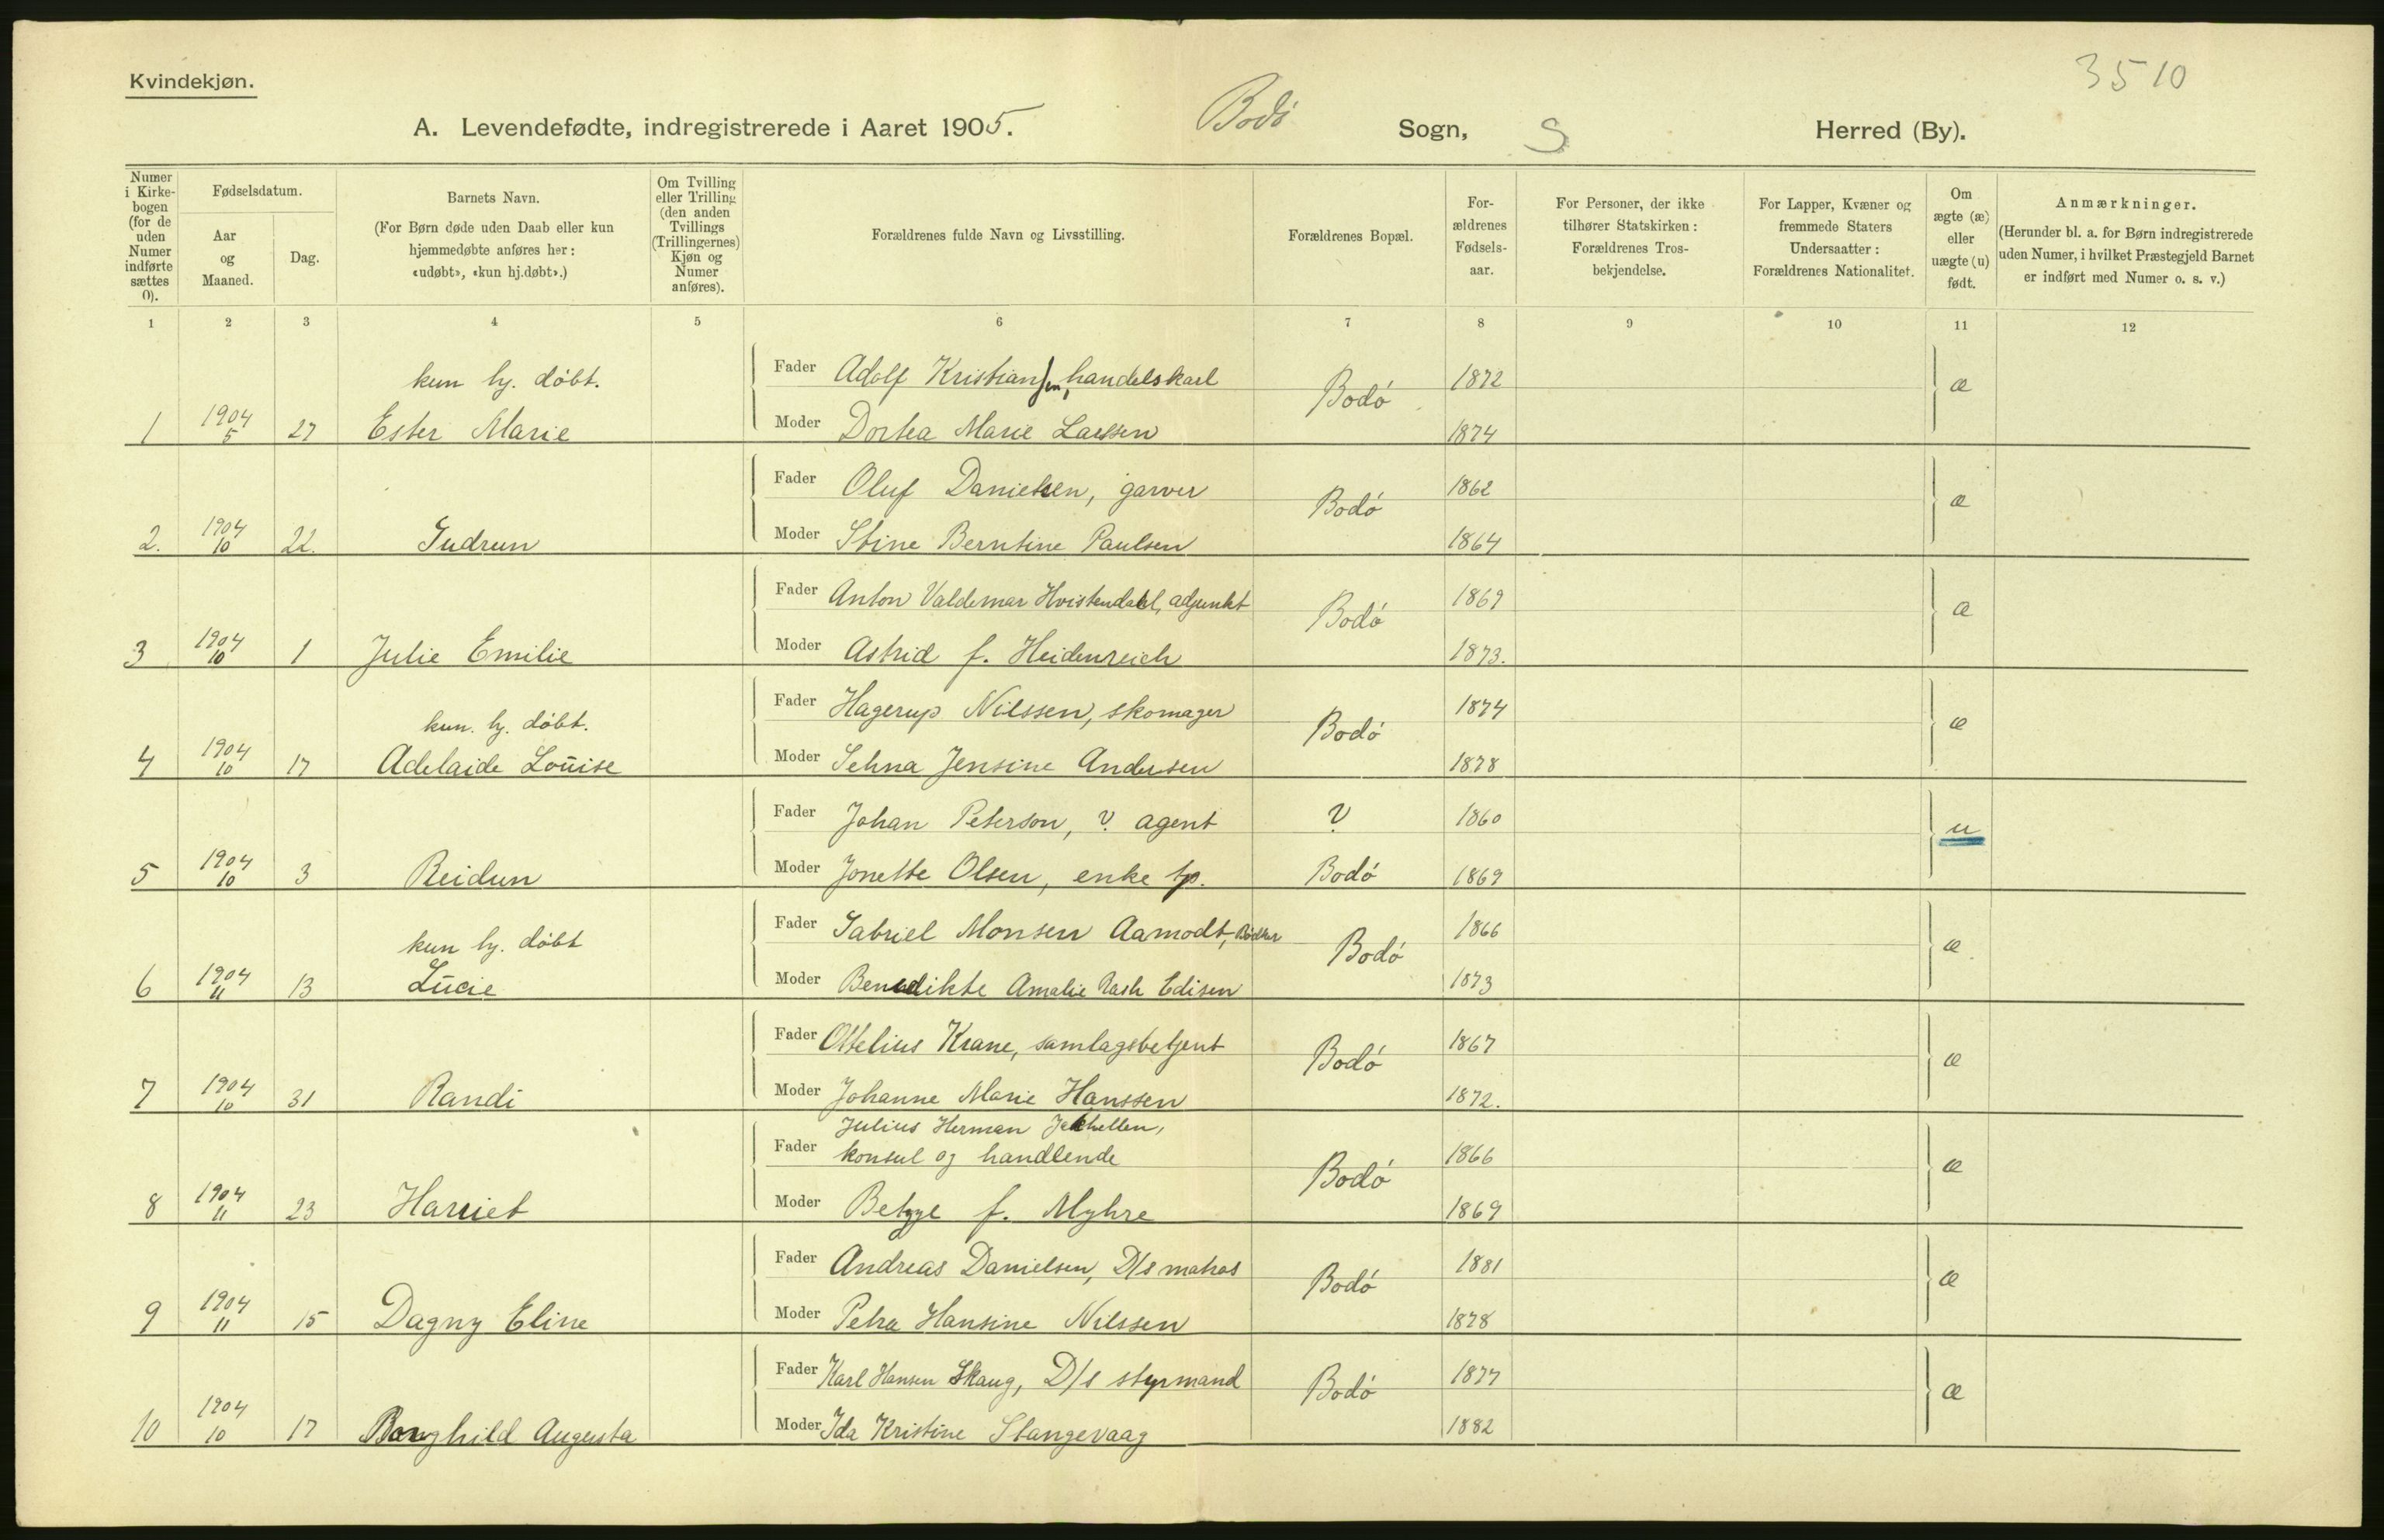 Kvindekjøn.
3510
A. Levendefødte, indregistrerede i Aaret 1905. Bodø Sogn, S Herred (By).
Numer i Kirkebogen (for de uden Numer indførte sættes 0).
Fødselsdatum.
Aar og Maaned.
Dag.
Barnets Navn.
(For Børn døde uden Daab eller kun hjemmedøbte anføres her: «udøbt», «kun hj.døbt».)
Om Tvilling eller Trilling (den anden Tvillings (Trillingernes) Kjøn og Numer anføres).
Forældrenes fulde Navn og Livsstilling.
Forældrenes Bopæl.
Forældrenes Fødselsaar.
For Personer, der ikke tilhører Statskirken: Forældrenes Trosbekjendelse.
For Lapper, Kvæner og fremmede Staters Undersaatter: Forældrenes Nationalitet.
Om ægte (æ) eller uægte (u) født.
Anmærkninger.
(Herunder bl. a. for Børn indregistrerede uden Numer, i hvilket Præstegjeld Barnet er indført med Numer o. s. v.)
1 2 3 4 5 6 7 8 9 10 11 12
kun hj. døbt. Fader Adolf Kristiansen, handelskarl Bodø 1872 æ
1 1904 5 27 Ester Marie Moder Dortea Marie Larssen 1874
Fader Oluf Danielsen, garver Bodø 1862 æ
2. 1904 10 22. Gudrun Moder Stine Berntine Paulsen 1864
Fader Anton Valdemar Hvistendahl, adjunkt Bodø 1869 æ
3 1904 10 1 Julie Emilie Moder Astrid f. Heidenreich 1873.
kun. hj. døbt. Fader Hagerup Nilssen, skomager Bodø 1874 æ
4 1904 10 17 Adelaide Louise Moder Selma Jensine Andersen 1878
Fader Johan Peterson, ? agent ? 1860 u
5 1904 10 3 Reidun Moder Jonette Olsen, enke tp. Bodø 1869
kun hj. døbt Fader Gabriel Monsen Aamodt, Bødker Bodø 1866 æ.
6 1904 11 13 Lucie Moder Benedikte Amalie Rash Edisen 1873
Fader Ottelius Krane, samlagsbetjent Bodø 1867 æ
7 1904 10 31 Randi Moder Johanne Marie Hanssen 1872.
Julius Herman
Fader konsul og handlende Bodø 1866 æ
8 1904 11 23 Harriet Moder f. Myhre 1869
Fader Andreas Danielsen, D/s matros Bodø 1881 æ
9 1904 11 15 Dagny Eline Moder Petra Hansine Nilssen 1878
Fader Karl Hansen Skaug, D/s styrmand Bodø 1877 æ
10 1904 10 17 Borghild Augusta Moder Ida Kristine Stangevaag 1882